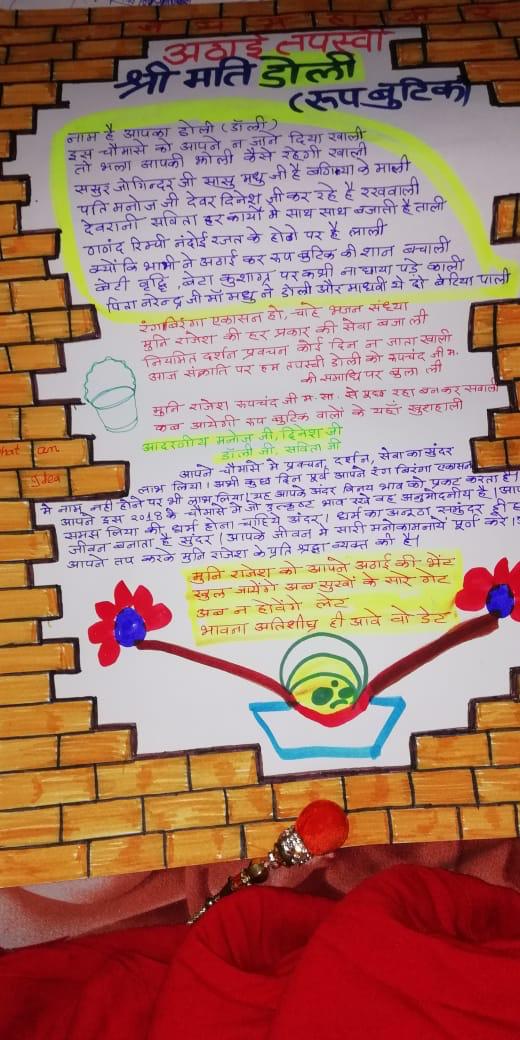 जय महावीर
अठाई तपस्वी
श्री मति डोली
(रूप बुटिक)
नाम है आपका डोली (डॉली)
इस चौमासे को आपने न जाने दिया खाली
तो भला आपकी झोली कैसे रहेगी खाली
ससुर जोगिन्दर जी सासु मधु जी है बगिया के माली
पति मनोज जी देवर दिनेश जी कर रहे है रखवाली
देवरानी सविता हर कार्यो मे साथ साथ बजाती है ताली
ननंद रिम्पी नंदोई रजत के होठो पर है लाली
क्योंकि भाभी ने अठाई कर रूप बुटिक की शान बचाली
बेटी वृद्धि, बेटा कुशाग्र पर कभी ना छाया पड़े काली
पिता नरेन्द्र जी माँ मधु ने डोली और माधवी ये दो बेटिया पाली
रंगबिरंगा एकासन हो, चाहे भजन संध्या
मुनि राजेश की हर प्रकार की सेवा बजा ली
नियमित दर्शन प्रवचन कोई दिन न जाता खाली
आज संक्राति पर हम तपस्वी डोली को रूपचंद जी म.
की समाधि पर बुला ली
मुनि राजेश रूपचंद जी म.सा. से पूछ रहा बनकर सवाली
कब आयेगी रूप बुटिक वालो के यहाँ खुशहाली
आदरणीय मनोज जी, दिनेश जी
डॉली जी, सविता जी
आपने चौमासे मे प्रवचन, दर्शन, सेवा का सुंदर
लाभ लिया। अभी कुछ दिन पूर्व आपने रंग बिरंगा एकासन
मे नाम नही होने पर भी लाभ लिया। यह आपके अंदर विनय भाव को प्रकट करता है।
आपने इस 2018 के चौमासे मे जो उत्कृष्ट भाव रखे वह अनुमोदनीय है।
समझ लिया की धर्म होना चाहिये अंदर। धर्म का अनूठा समुंदर ही
जीवन बनाता है सुंदर। आपके जीवन मे सारी मनोकामनाये पूर्ण करे।
आपने तप करके मुनि राजेश के प्रति श्रद्धा व्यक्त की है।
what an
Idea
मुनि राजेश को आपने अठाई की भेंट
खुल जायेंगे अब सुखों के सारे गेट
अब न होवेंगे लेट
भावना अतिशीघ्र ही आवे वो डेट